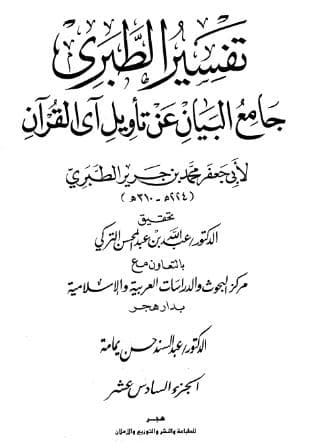 تفسير الطبري
جامع البيان عن تأويل آي القرآن
لأبي جعفر محمد بن جرير الطبري
(٢٢٤هـ - ٣١٠هـ)
تحقيق
الدكتور/عبد الله بن عبد المحسن التركي
بالتعاون مع
مركز البحوث والدراسات العربية والإسلامية
بدار هجر
الدكتور/عبد السند حسن يمامة
الجزء السادس عشر
هجر
للطباعة والنشر والتوزيع والإعلان